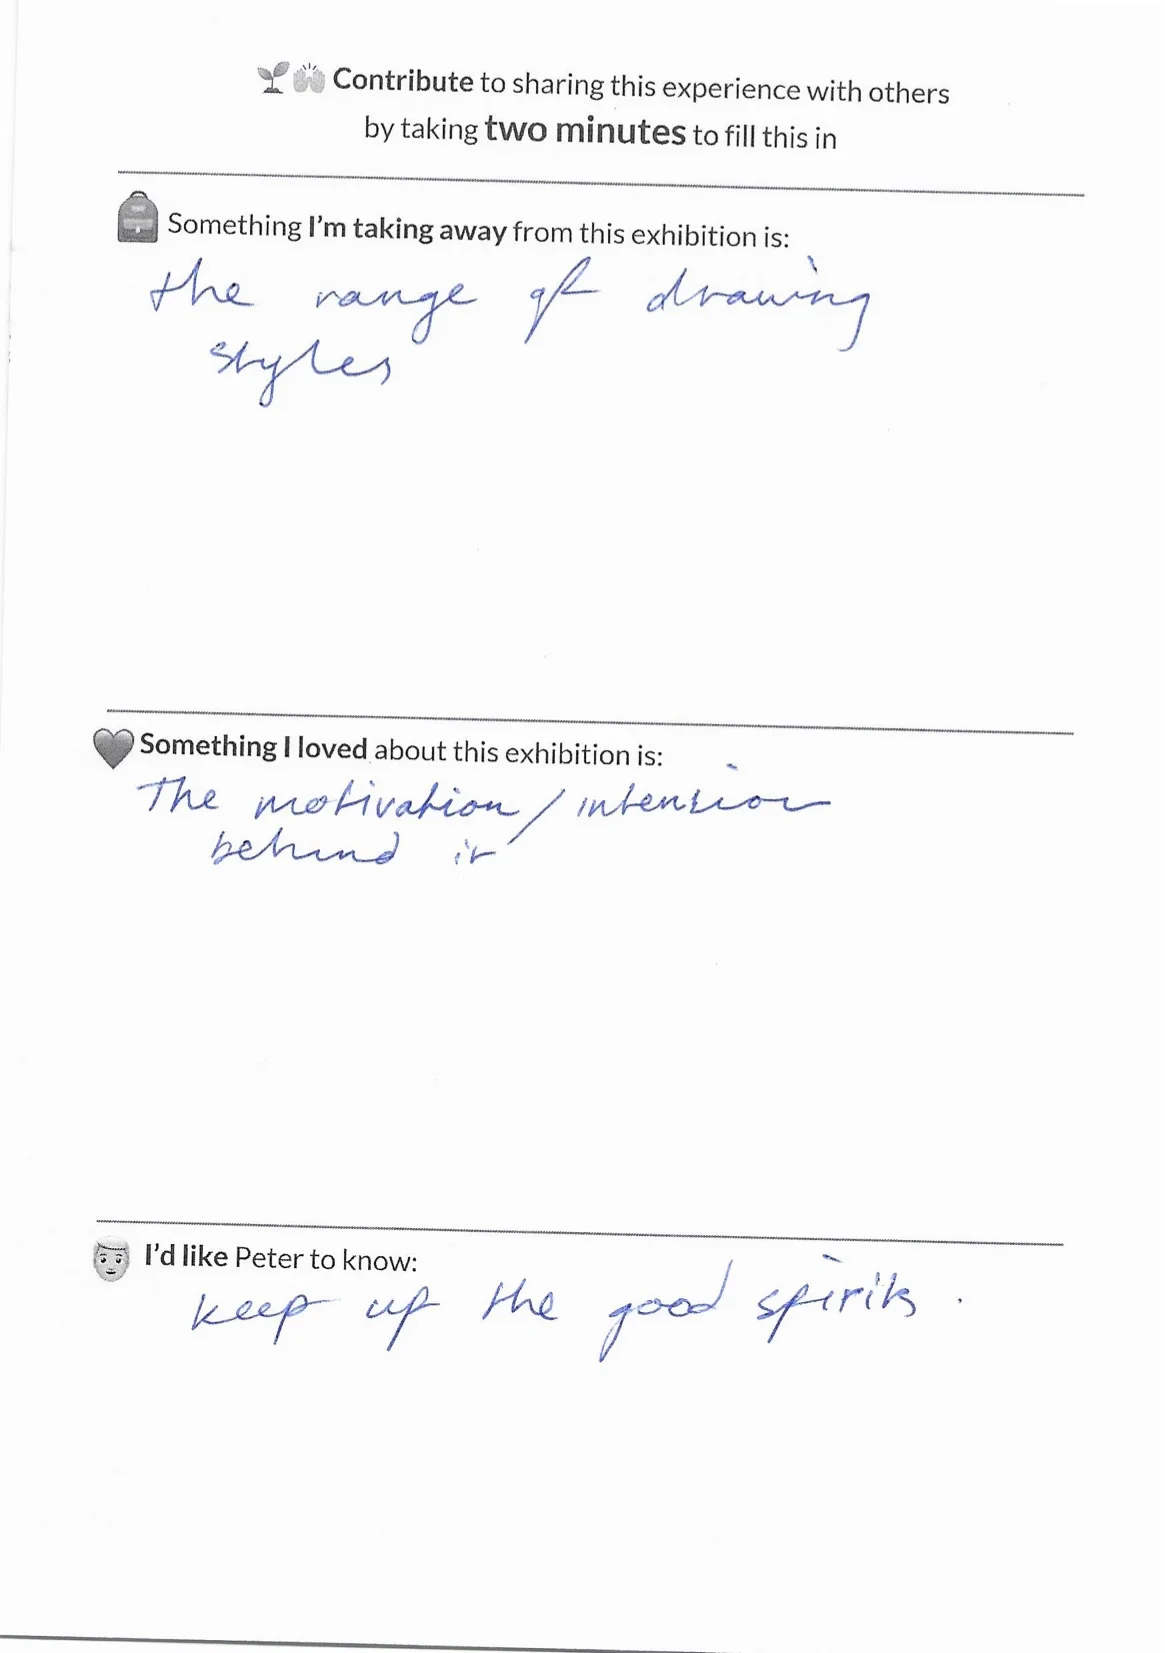 Contribute to sharing this experience with others
by taking two minutes to fill this in
Something I'm taking away from this exhibition is:
the range of drawing
styles
Something I loved about this exhibition is:
The motivation / intention
behind it
I'd like Peter to know:
keep up the good spirits .